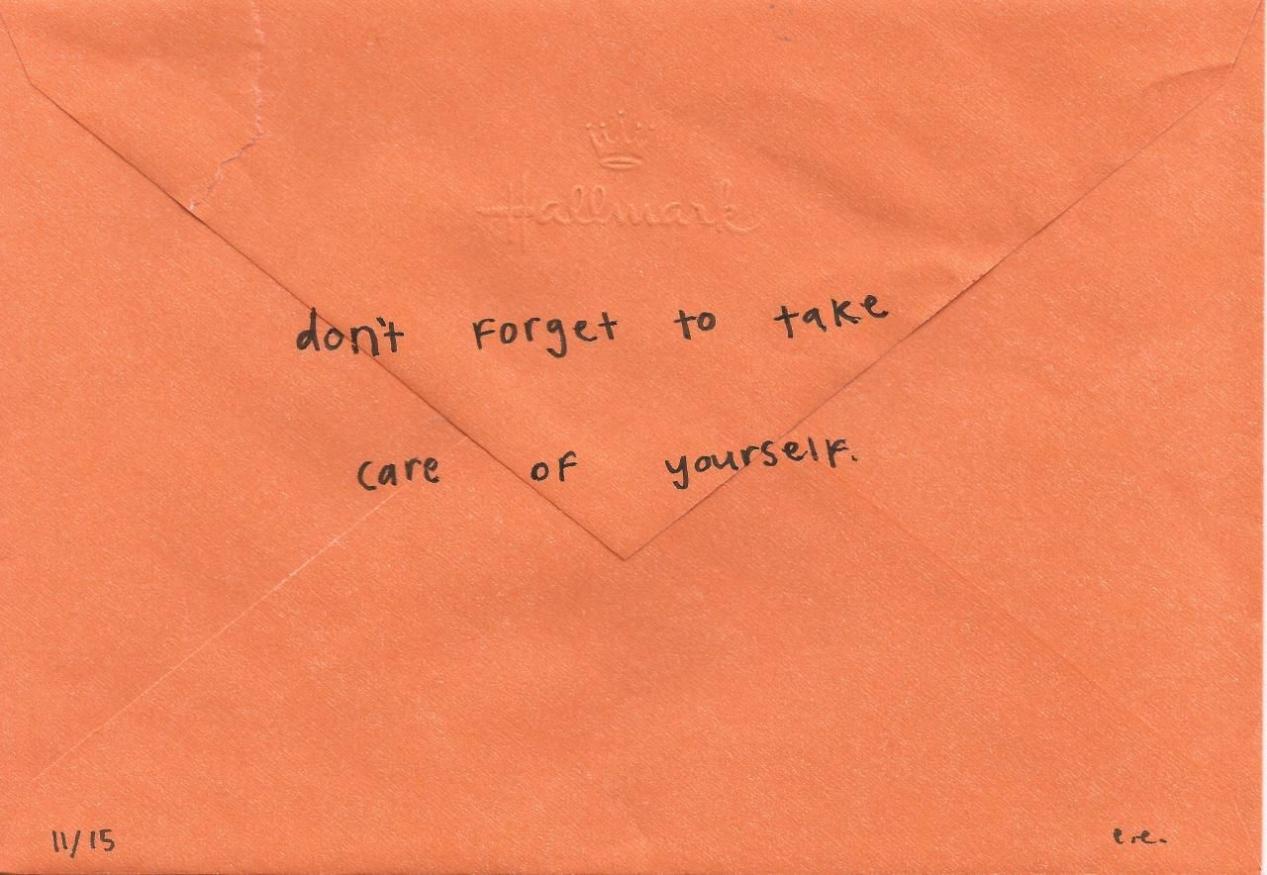 Hallmark
don't forget to take
care of yourself.
11/15
e.e.